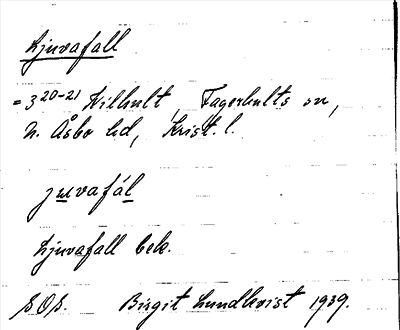 Ljuvafall
= 3²⁰⁻²¹ Hilhult, Fagerhults sn,
N. Åsbo hd, Krist. l.
juvafál
Ljuvafall bek.
S.O.S. Birgit Lundkvist 1939.